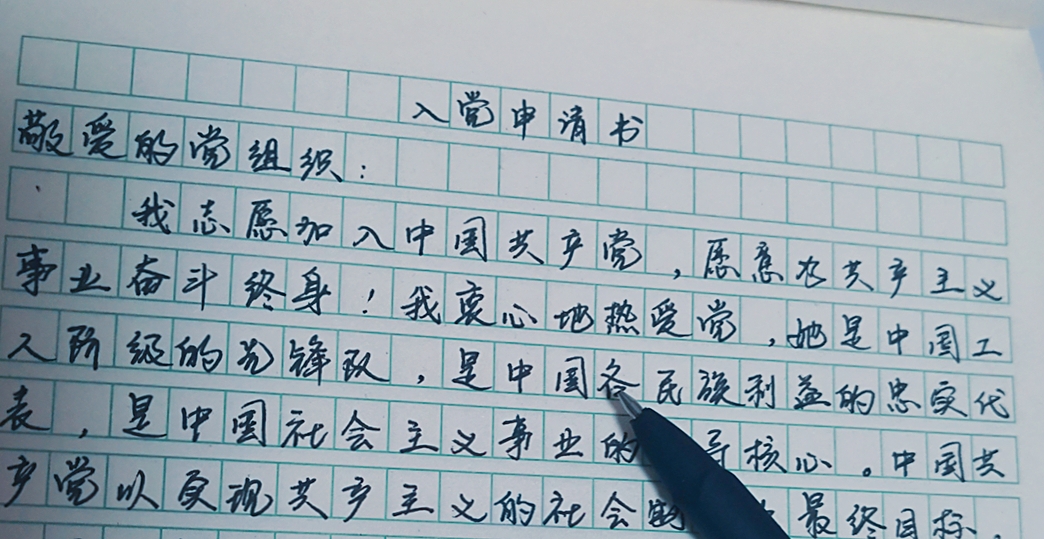 入党申请书
敬爱的党组织：
我志愿加入中国共产党，愿意为共产主义
事业奋斗终身！我衷心地热爱党，她是中国工
人阶级的先锋队，是中国各民族利益的忠实代
表，是中国社会主义事业的导核心。中国共
产党以实现共产主义的社会最终目标，